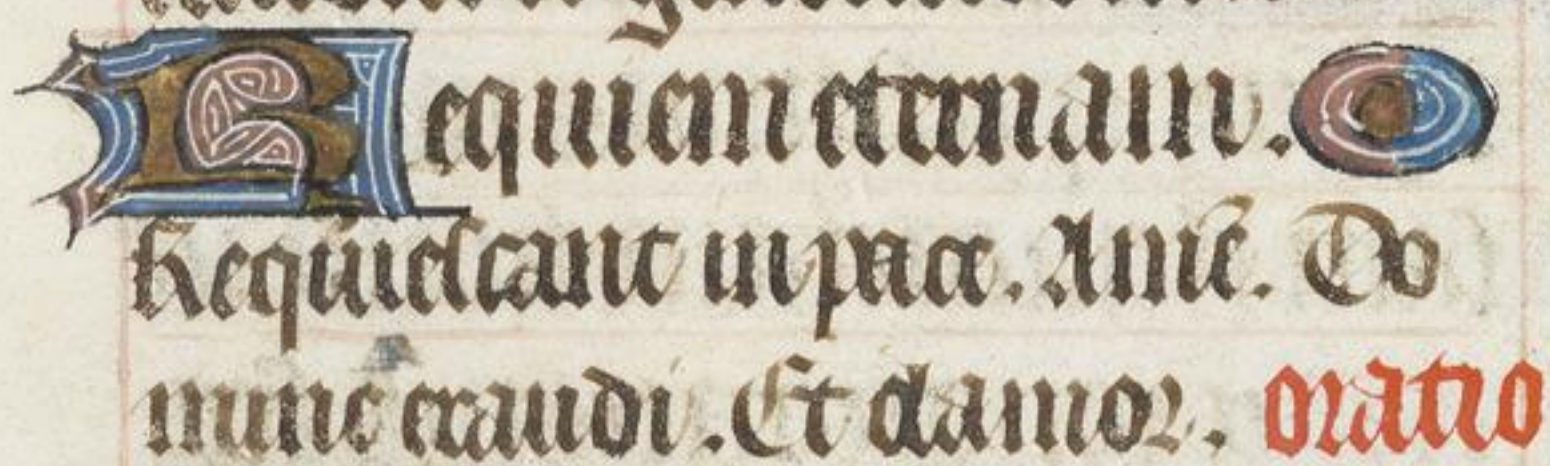 Requiem eternam.
Requiescant in pace. Amē. Do
mine exaudi. Et clamor. oratio